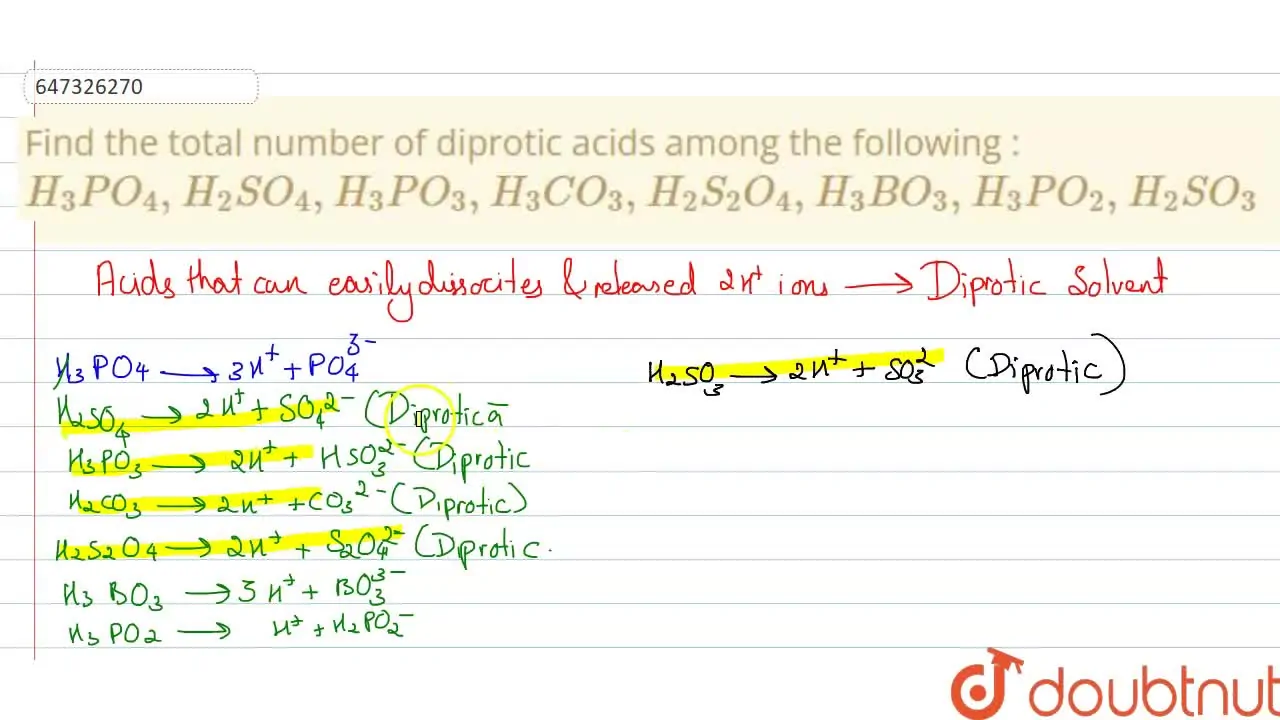 647326270
Find the total number of diprotic acids among the following :
H₃PO₄, H₂SO₄, H₃PO₃, H₃CO₃, H₂S₂O₄, H₃BO₃, H₃PO₂, H₂SO₃
Acids that can easily dissocites & released 2H⁺ ions ⟶ Diprotic Solvent
H₃PO₄ ⟶ 3H⁺ + PO₄³⁻
H₂SO₄ ⟶ 2H⁺ + SO₄²⁻ (Diprotic a
H₃PO₃ ⟶ 2H⁺ + HSO₃²⁻ (Diprotic
H₂CO₃ ⟶ 2H⁺ + CO₃²⁻ (Diprotic)
H₂S₂O₄ ⟶ 2H⁺ + S₂O₄²⁻ (Diprotic.
H₃BO₃ ⟶ 3H⁺ + BO₃³⁻
H₃PO₂ ⟶ H⁺ + H₂PO₂⁻
H₂SO₃ ⟶ 2H⁺ + SO₃² (Diprotic)
doubtnut